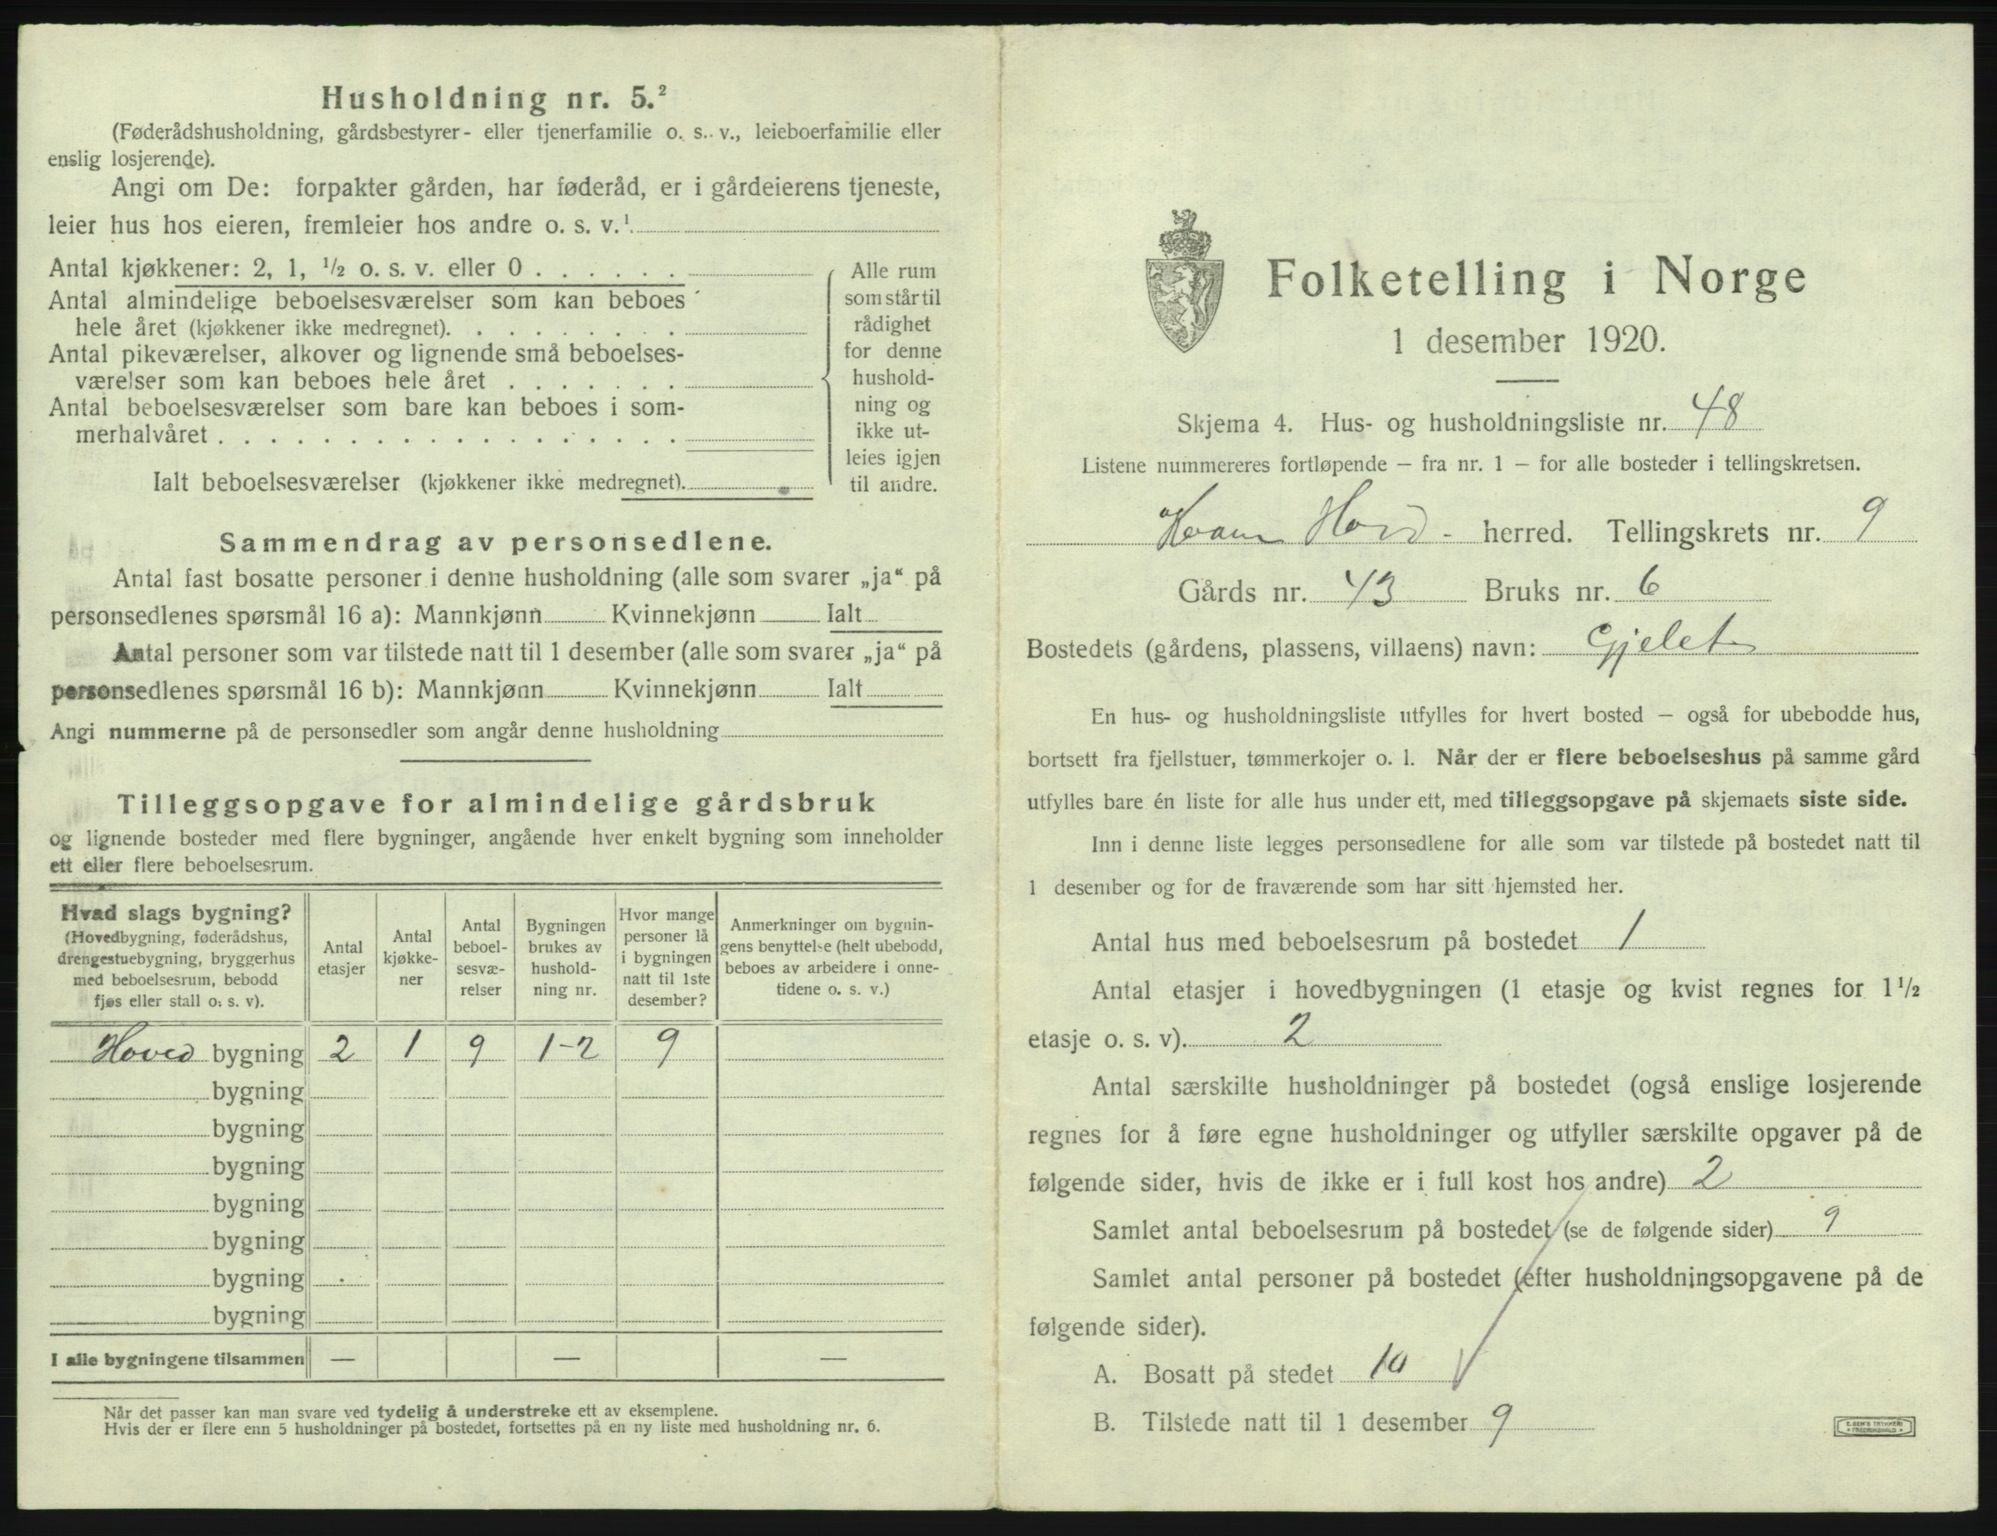 Husholdning nr. 5.²
(Føderådshusholdning, gårdsbestyrer- eller tjenerfamilie o. s. v., leieboerfamilie eller
enslig losjerende).
Angi om De: forpakter gården, har føderåd, er i gårdeierens tjeneste,
leier hus hos eieren, fremleier hos andre o. s. v.¹
Antal kjøkkener: 2, 1, ½ o. s. v. eller 0 . . . . . .
Antal almindelige beboelsesværelser som kan beboes
hele året (kjøkkener ikke medregnet). . . . . . . . .
Antal pikeværelser, alkover og lignende små beboelses-
værelser som kan beboes hele året . . . . . . .
Antal beboelsesværelser som bare kan beboes i som-
merhalvåret . . . . . . . . . . . . . . . . . .
Ialt beboelsesværelser (kjøkkener ikke medregnet).
Alle rum
som står til
rådighet
for denne
hushold-
ning og
ikke ut-
leies igjen
til andre.
Sammendrag av personsedlene.
Antal fast bosatte personer i denne husholdning (alle som svarer „ja“ på
personsedlenes spørsmål 16 a): Mannkjønn Kvinnekjønn Ialt
Antal personer som var tilstede natt til 1 desember (alle som svarer „ja“ på
personsedlenes spørsmål 16 b): Mannkjønn Kvinnekjønn Ialt
Angi nummerne på de personsedler som angår denne husholdning
Tilleggsopgave for almindelige gårdsbruk
og lignende bosteder med flere bygninger, angående hver enkelt bygning som inneholder
ett eller flere beboelsesrum.
Hvad slags bygning?
(Hovedbygning, føderådshus,
drengestuebygning, bryggerhus
med beboelsesrum, bebodd
fjøs eller stall o. s. v).
Antal
etasjer
Antal
kjøkke-
ner
Antal
beboel-
sesvæ-
relser
Bygningen
brukes av
hushold-
ning nr.
Hvor mange
personer lå
i bygningen
natt til 1ste
desember?
Anmerkninger om bygnin-
gens benyttelse (helt ubebodd,
beboes av arbeidere i onne-
tidene o. s. v.)
Hoved bygning 2 1 9 1-2 9
bygning
bygning
bygning
bygning
bygning
bygning
bygning
I alle bygningene tilsammen — — —
Når det passer kan man svare ved tydelig å understreke ett av eksemplene.
Hvis der er flere enn 5 husholdninger på bostedet, fortsettes på en ny liste med husholdning nr. 6.
Folketelling i Norge
1 desember 1920.
Skjema 4. Hus- og husholdningsliste nr. 48
Listene nummereres fortløpende – fra nr. 1 – for alle bosteder i tellingskretsen.
Kvam Hord- herred. Tellingskrets nr. 9
Gårds nr. 43 Bruks nr. 6
Bostedets (gårdens, plassens, villaens) navn: Gjelet
En hus- og husholdningsliste utfylles for hvert bosted – også for ubebodde hus,
bortsett fra fjellstuer, tømmerkojer o. l. Når der er flere beboelseshus på samme gård
utfylles bare én liste for alle hus under ett, med tilleggsopgave på skjemaets siste side.
Inn i denne liste legges personsedlene for alle som var tilstede på bostedet natt til
1 desember og for de fraværende som har sitt hjemsted her.
Antal hus med beboelsesrum på bostedet 1
Antal etasjer i hovedbygningen (1 etasje og kvist regnes for 1½
etasje o. s. v). 2
Antal særskilte husholdninger på bostedet (også enslige losjerende
regnes for å føre egne husholdninger og utfyller særskilte opgaver på de
følgende sider, hvis de ikke er i full kost hos andre) 2
Samlet antal beboelsesrum på bostedet (se de følgende sider) 9
Samlet antal personer på bostedet (efter husholdningsopgavene på de
følgende sider).
A. Bosatt på stedet 10
B. Tilstede natt til 1 desember 9